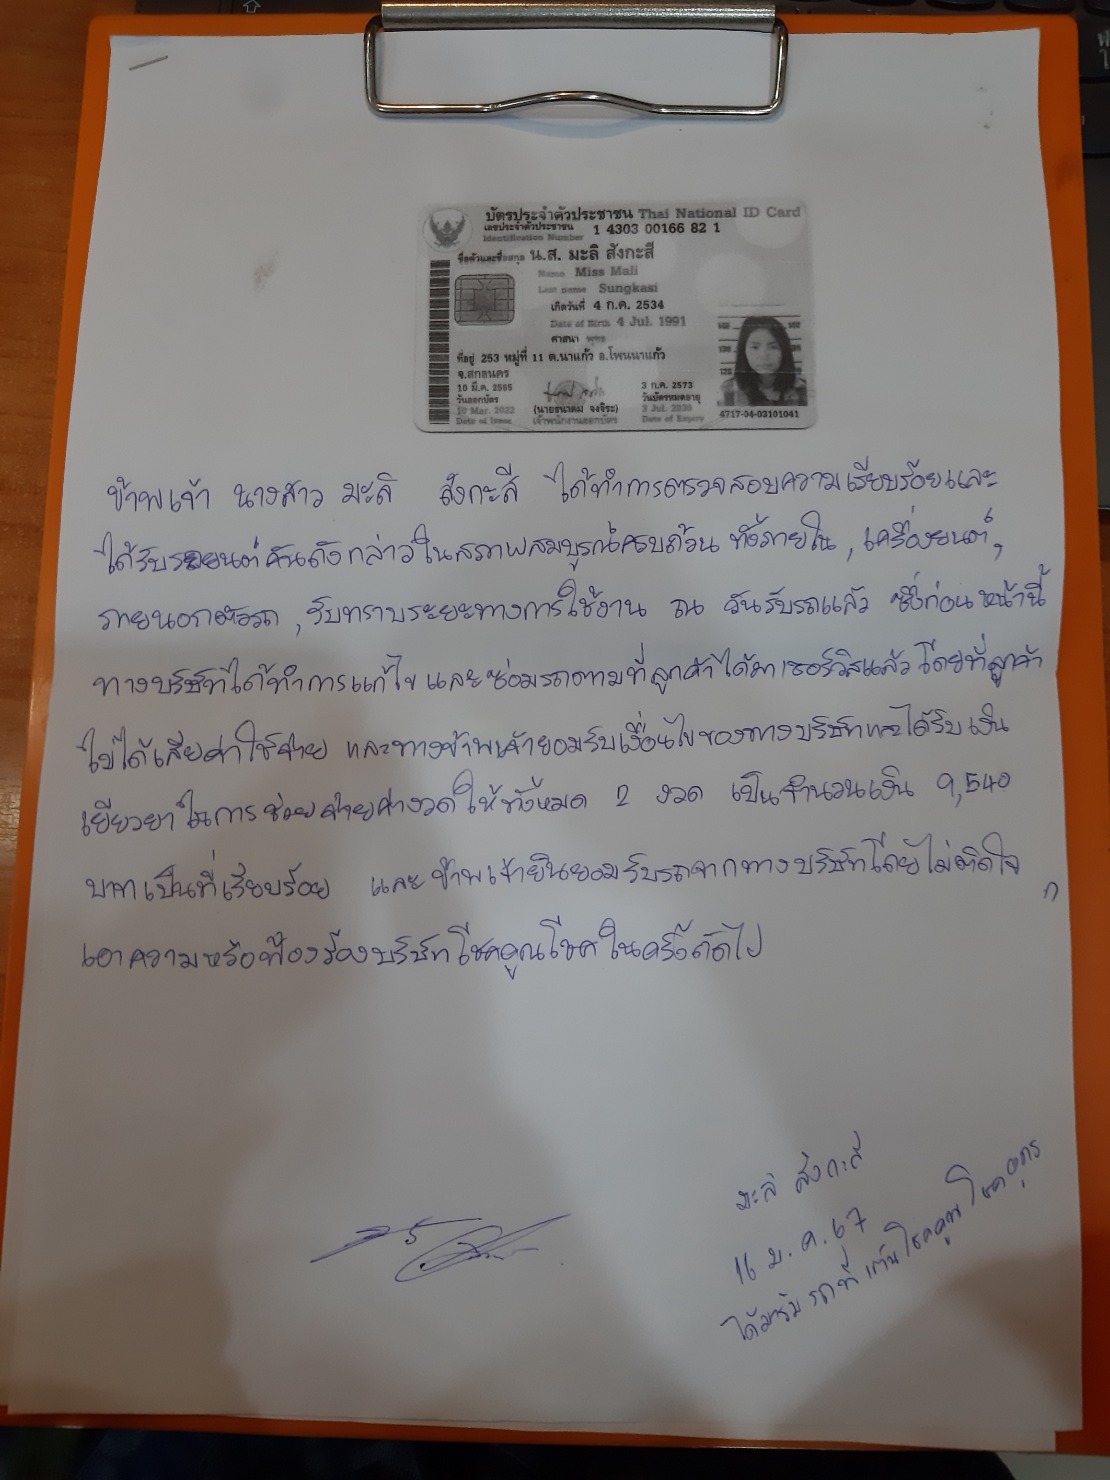 บัตรประจำตัวประชาชน Thai National ID Card
เลขประจำตัวประชาชน 1 4303 00166 82 1
Identification Number
ชื่อตัวและชื่อสกุล น.ส. มะลิ สังกะสี
Name Miss Mali
Last name Sungkasi
เกิดวันที่ 4 ก.ค. 2534
Date of Birth 4 Jul. 1991
ศาสนา พุทธ
ที่อยู่ 253 หมู่ที่ 11 ต.นาแก้ว อ.โพนนาแก้ว
จ.สกลนคร
10 มี.ค. 2565
วันออกบัตร
10 Mar. 2022
Date of Issue
(นายธนาคม จงจิระ)
เจ้าพนักงานออกบัตร
3 ก.ค. 2573
วันบัตรหมดอายุ
3 Jul. 2030
Date of Expiry
4717-04-03101041
ข้าพเจ้า นางสาว มะลิ สังกะสี ได้ทำการตรวจสอบความเรียบร้อยและ
ได้รับรถยนต์คันดังกล่าวในสภาพสมบูรณ์ครบถ้วน ทั้งภายใน, เครื่องยนต์,
ภายนอกตัวรถ, รับทราบระยะทางการใช้งาน ณ วันรับรถแล้ว ซึ่งก่อนหน้านี้
ทางบริษัทได้ทำการแก้ไขและซ่อมรถตามที่ลูกค้าได้มาเซอร์วิสแล้ว โดยที่ลูกค้า
ไม่ได้เสียค่าใช้จ่าย และทางข้าพเจ้ายอมรับเงื่อนไขของทางบริษัทและได้รับเงิน
เยียวยาในการช่วยจ่ายค่างวดให้ทั้งหมด 2 งวด เป็นจำนวนเงิน 9,540
บาทเป็นที่เรียบร้อย และข้าพเจ้ายินยอมรับรถจากทางบริษัทโดยไม่ติดใจ
เอาความหรือฟ้องร้องบริษัทโชคคูณโชคในครั้งถัดไป
มะลิ สังกะสี
16 ม.ค.67
ได้มารับรถที่เต้นโชคคูณโชคอุดร